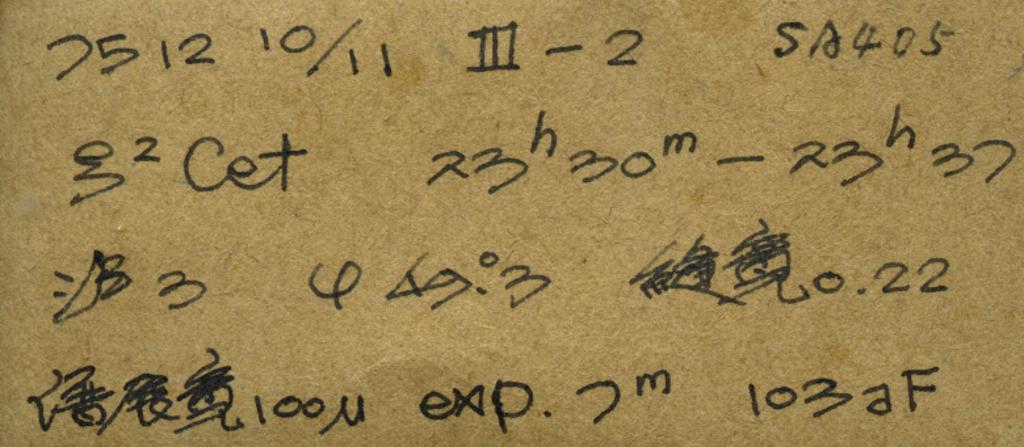 7512 10/11 III-2 SA405
ξ² Cet 23ʰ30ᵐ - 23ʰ37
波 3 φ 49°.3 縫寛 0.22
譜展寛 100μ exp. 7ᵐ 103aF